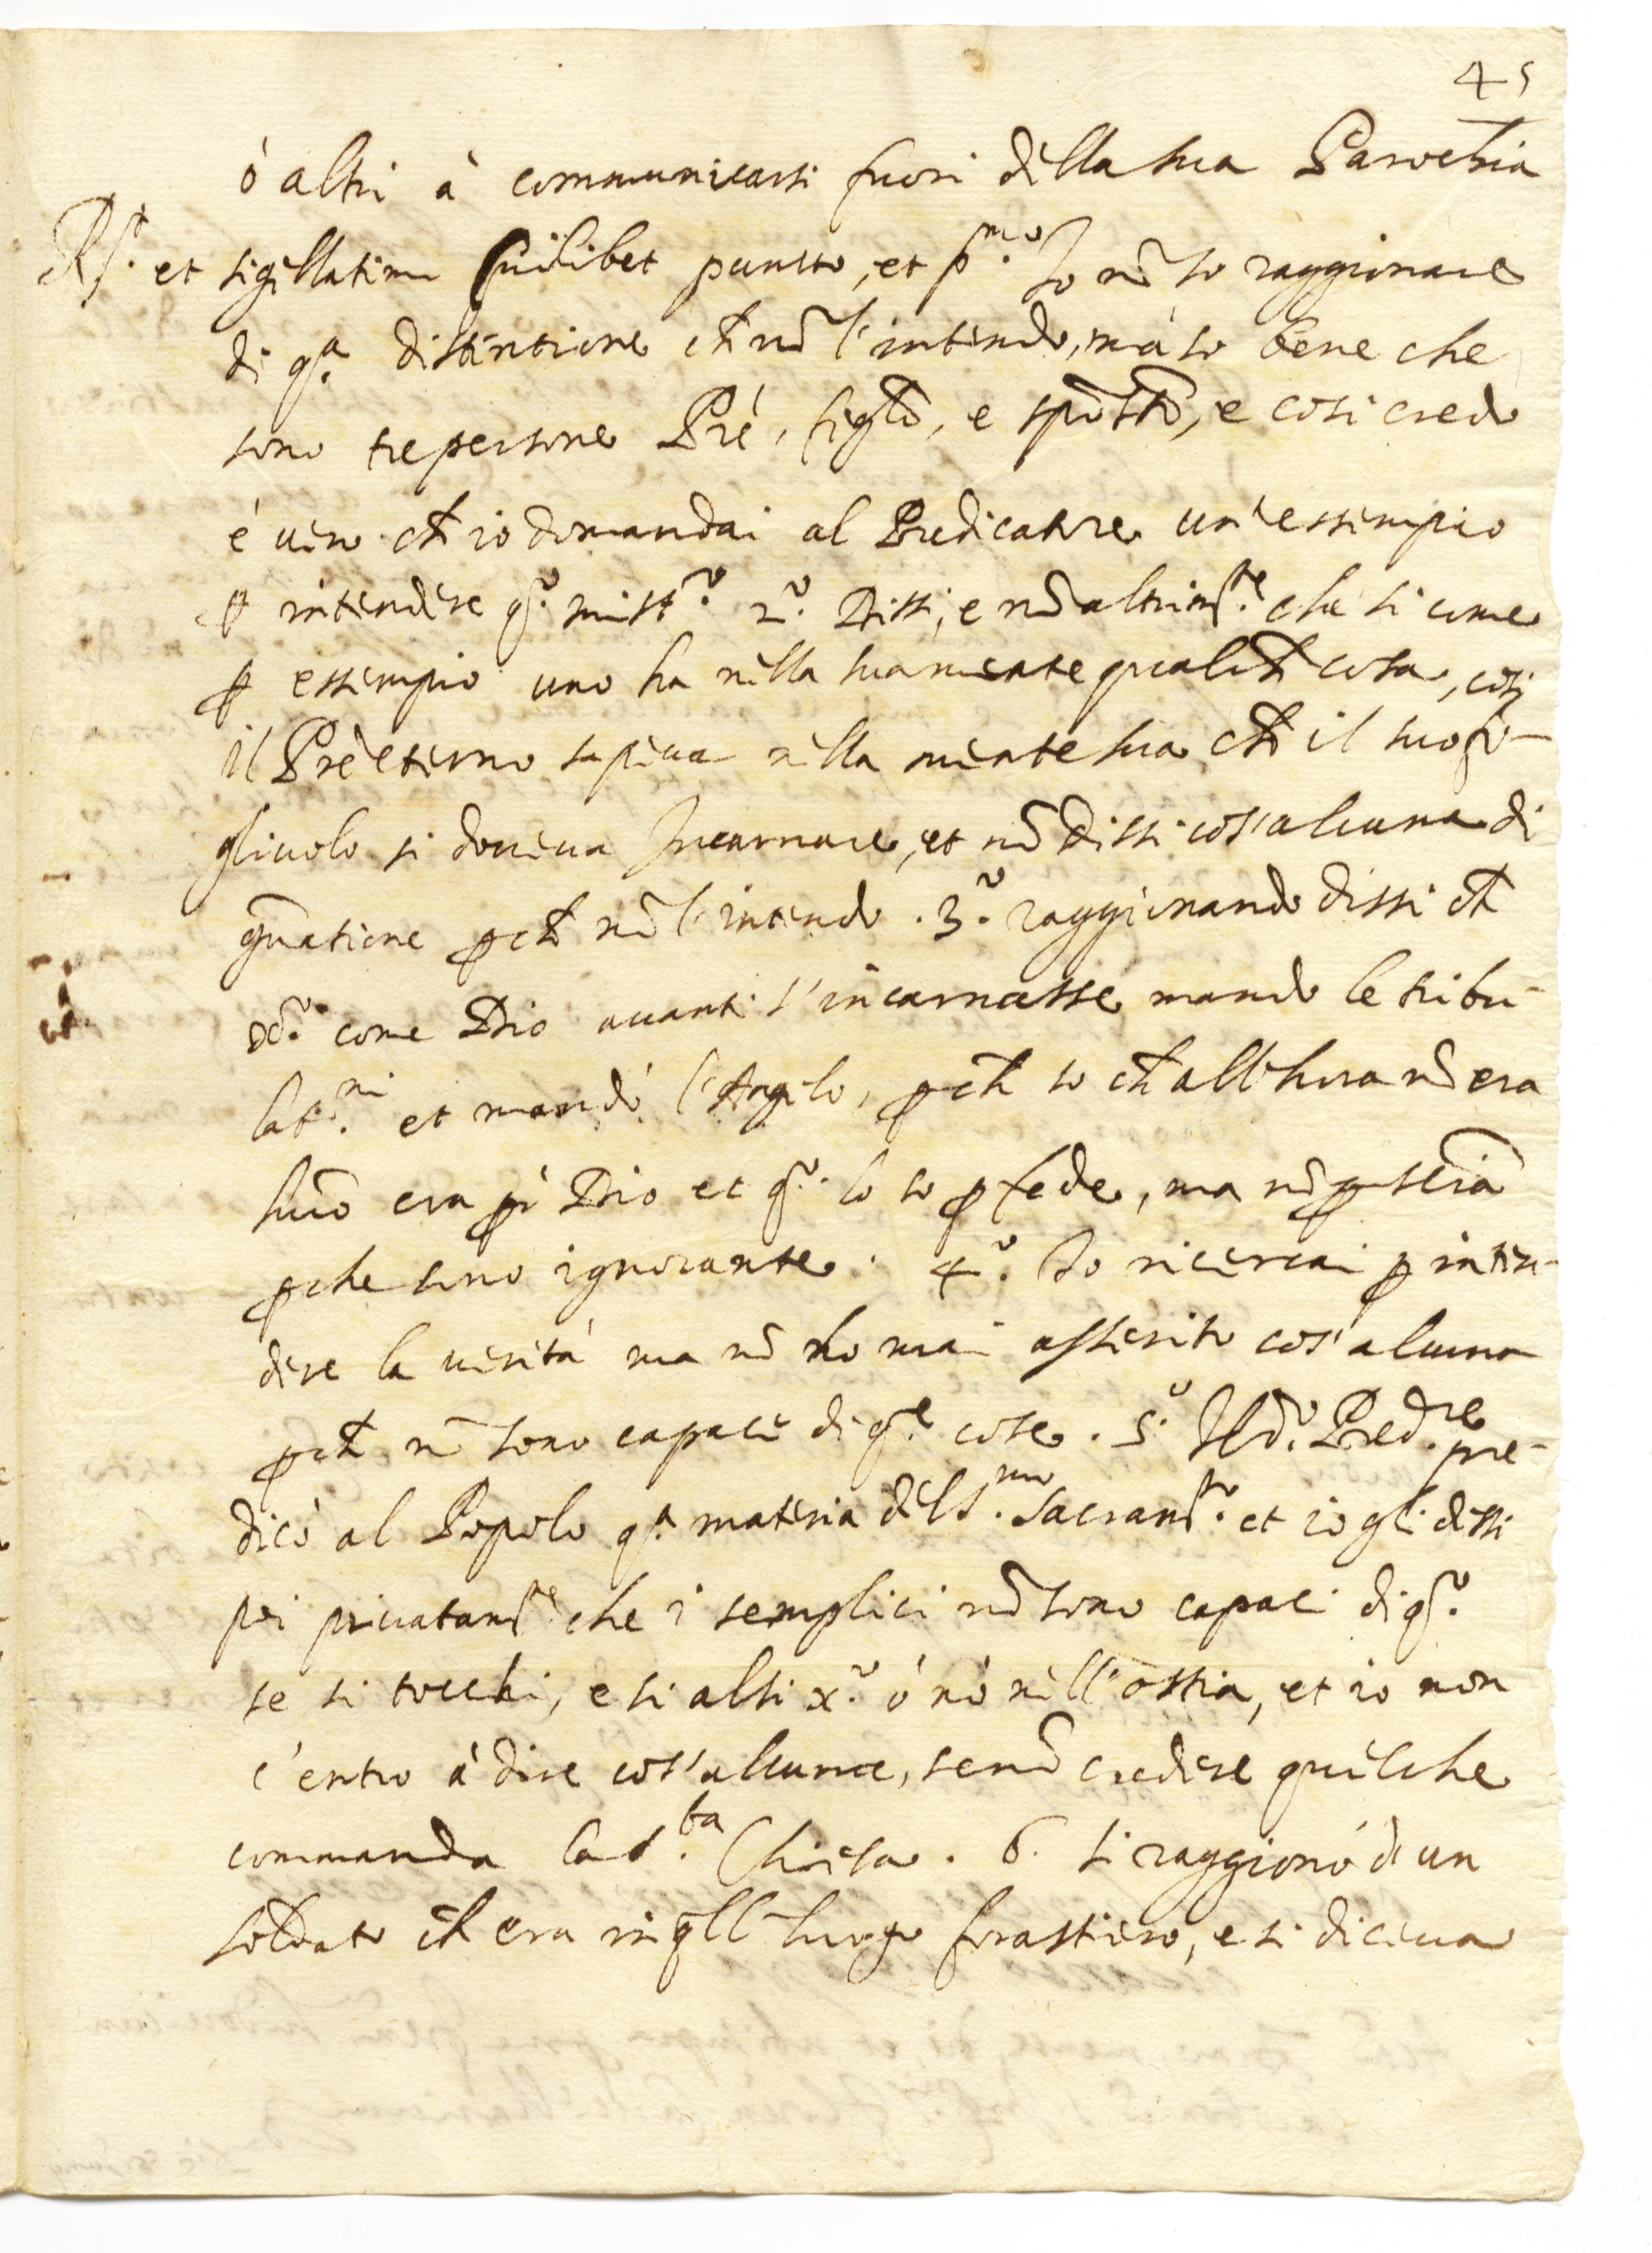 45
ò altri à communicarsi fuori della sua Parochia
R.t et sigillatim cuilibet puncto, et p.mo Io nō so raggionare
di q.a distintione ch̄ nō l'intendo, mà so bene che
sono tre persone Prē, figlō, e spō stō, e così credo
è vero ch̄ io domandai al Predicatore un'essempio
ꝑ intendere q.o mist.o 2.o Dissi, e nō altrim.te che si come
ꝑ essempio uno ha nella sua mente qualch̄ cosa, così
il Prē eterno sapeva nella mente sua ch̄ il suo fi-
gliuolo si doveva Incarnare, et nō dissi cos'alcuna di
gnatione ꝑch̄ nō l'intendo. 3.o raggionando dissi ch̄
xo.o come Dio avanti s'incarnasse mandò le tribu-
lat.ni et mandò l'Angelo, ꝑch̄ so ch̄ all'hora nō era
huō era ꝑò Dio et q.o lo so ꝑ fede, ma nō ꝑ sciēa
ꝑche sono ignorante. 4.o Io ricercai ꝑ inten-
dere la verità ma nō ho mai asserito cos'alcuna
ꝑch̄ nō sono capace di q.e cose. 5.o Il d.o Pred.re pre-
dicò al Popolo q.a materia del S.mo Sacram.to et io gli dissi
poi privatam.te che i semplici nō sono capaci di q.o
se si tocchi, e si alsi x.o ò nò nell'ostia, et io non
c'entro à dire cos'alcuna, se nō credere quel che
commanda la S.ta Chiesa. 6. si raggionò di un
soldato ch̄ era in qll luogo forastiero, e si diceva